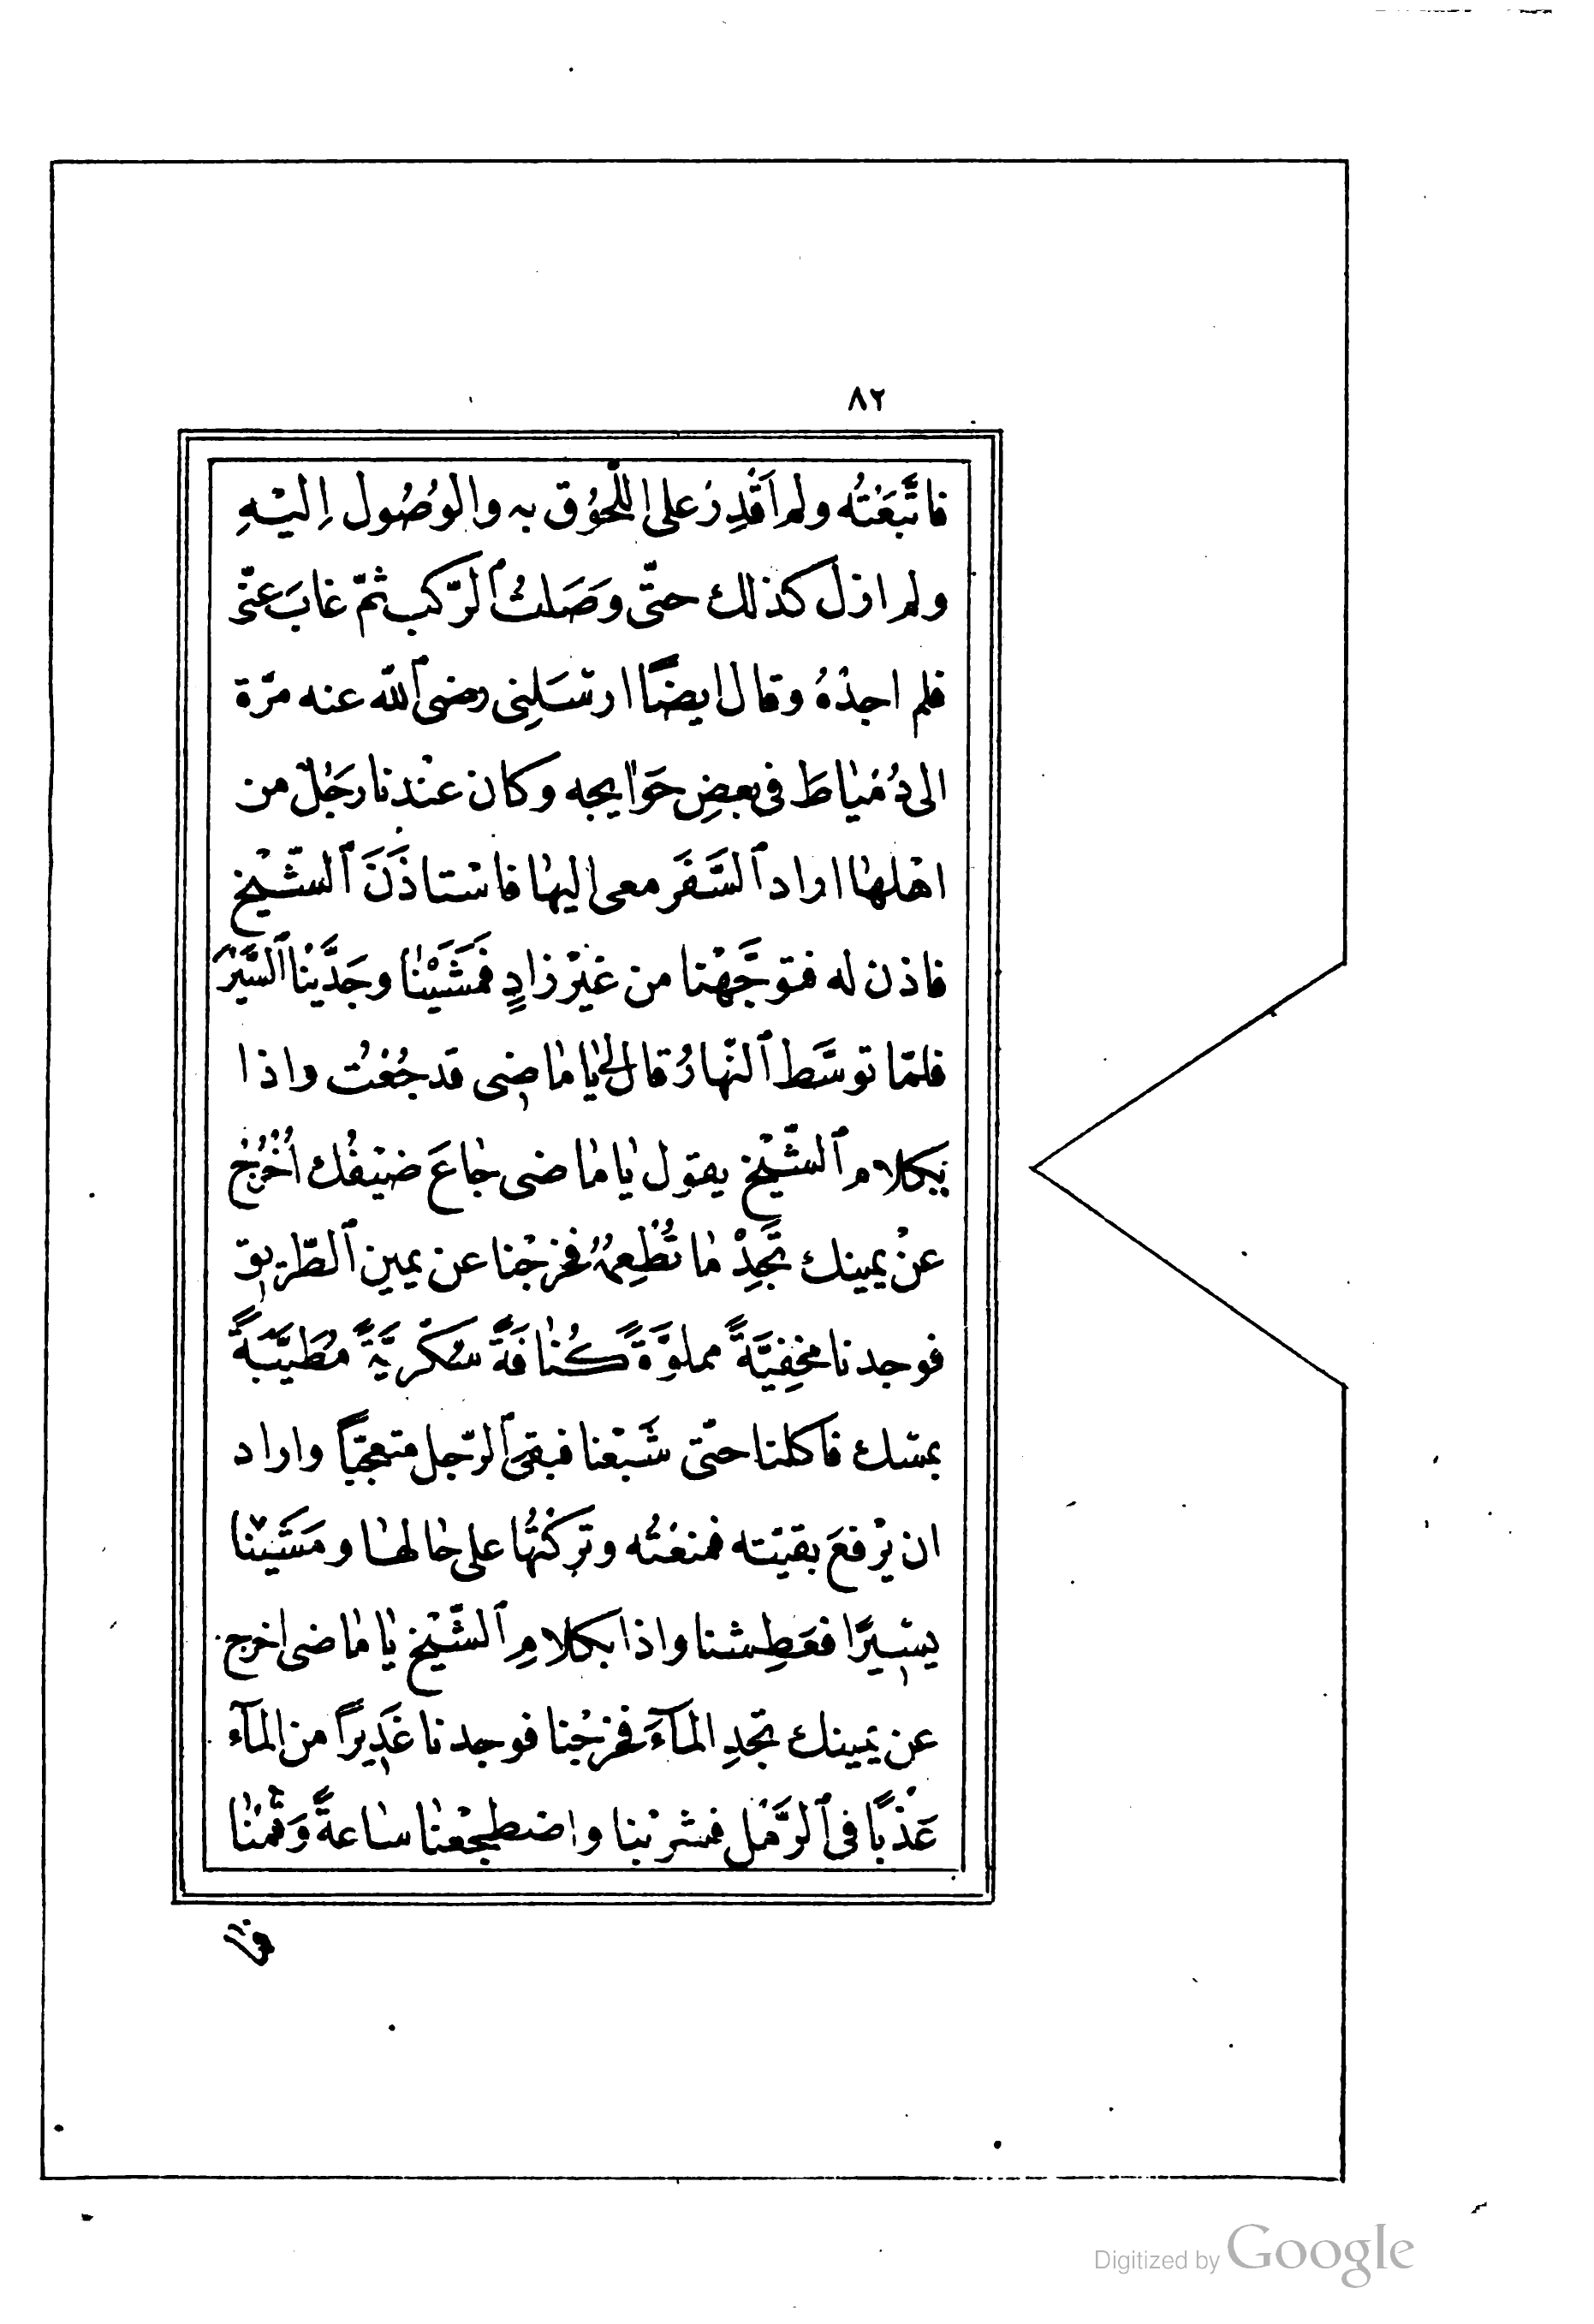 ٨٢
فاتَّبَعْتُه ولم اَقْدِرْ على اللّحوُق به والوُصُول اِليْهِ
ولم ازل كذلك حتّى وَصَلتُ الرّكب ثمّ غابَ عنّى
فلم اجدْهُ وقال ايضًا ارسَلنِى رضى الله عنه مرّة
الى دُمْياطَ فى بعضِ حَوايجه وكان عنْدنا رجُلٌ من
اهْلها اراد السَّفَر معى اليها فاسْتاذَنَ الشّيْخ
فاذن له فتوجَّهْنا من غيْر زادٍ فمَشَيْنا وجَدَّيْنا السَّيْرَ
فلمّا توسَّط النّهارُ قال لى يا ماضِى قد جُعْتُ واذا
بكلام الشّيْخ يقول يا ماضى جاعَ ضيْفُك اُخْرُجْ
عنْ يمينك تَجِدْ ما تُطْعِمُهُ فخرجْنا عن يمين الطّريق
فوجدنا مخفِيَّةً مملوَّةً كُنافَةً سُكّريَّةً مُطَيَّبَةً
بمسك فاكلنا حتّى شَبعْنا فبقى الرّجل متعجّبًا واراد
ان يرْفعَ بقيّته فمنعْتُه وتركْتُها على حالها ومَشَيْنا
يسِيرًا فعَطِشنا واذا بكلامِ الشّيْخ يا ماضى اخرج
عن يمينك تجدِ المآءَ فخرجْنا فوجدنا غَدِيرًا من المآء
عَذْبًا فى الرَّمْل فشربْنا واضطجعْنا ساعةً وَقُمْنا